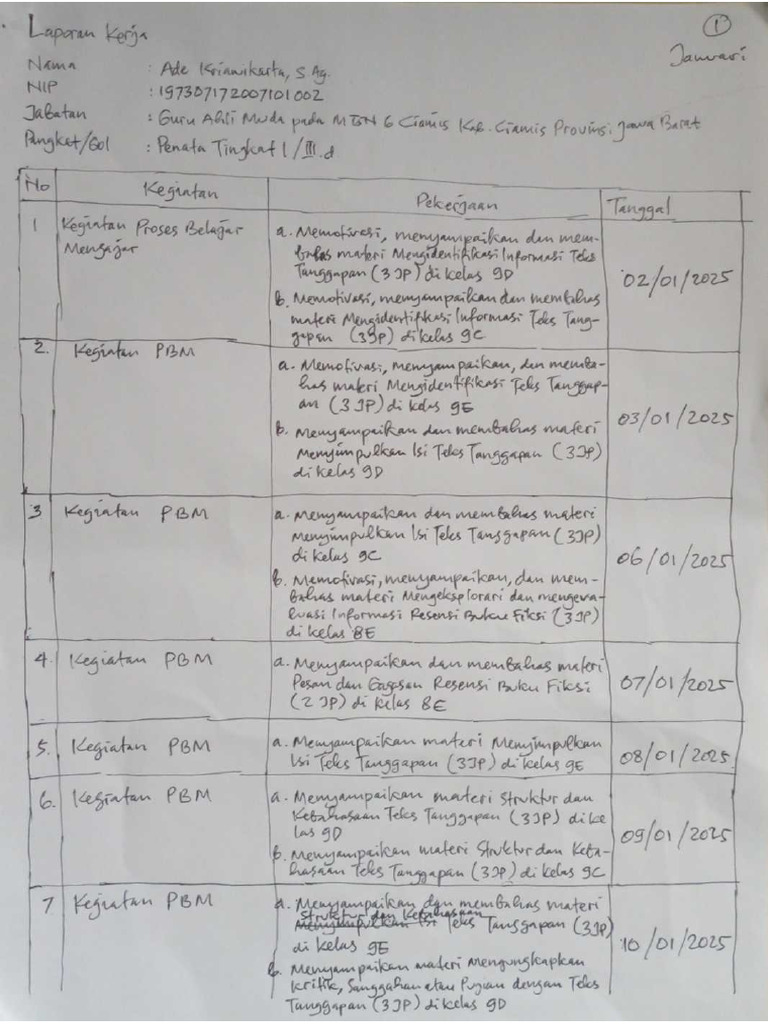 Laporan Kerja
1
Januari
Nama : Ade Krisnikarta, S Ag.
NIP : 197307172007101002
Jabatan : Guru Ahli Muda pada MTsN 6 Ciamis Kab. Ciamis Provinsi Jawa Barat
Pangket/Gol : Penata Tingkat I / III.d
No Kegiatan Pekerjaan Tanggal
1 Kegiatan Proses Belajar
Mengajar
a. Memotivasi, menyampaikan dan mem-
bahas materi Mengidentifikasi Informasi Teks
Tanggapan (3 JP) di kelas 9D
b. Memotivasi, menyampaikan dan membahas
materi Mengidentifikasi Informasi Teks Tang-
gapan (3JP) di kelas 9C
02/01/2025
2. Kegiatan PBM
a. Memotivasi, menyampaikan, dan memba-
has materi Mengidentifikasi Teks Tanggap-
an (3 JP) di kelas 9E
b. Menyampaikan dan membahas materi
Menyimpulkan Isi Teks Tanggapan (3JP)
di kelas 9D
03/01/2025
3 Kegiatan PBM
a. Menyampaikan dan membahas materi
Menyimpulkan Isi Teks Tanggapan (3JP)
di kelas 9C
b. Memotivasi, menyampaikan, dan mem-
bahas materi Mengeksplorari dan mengeva-
luasi Informasi Resensi Buku Fiksi (3 JP)
di kelas 8E
06/01/2025
4. Kegiatan PBM
a. Menyampaikan dan membahas materi
Pesan dan Gagasan Resensi Buku Fiksi
(2 JP) di kelas 8E
07/01/2025
5. Kegiatan PBM
a. Menyampaikan materi Menyimpulkan
Isi Teks Tanggapan (3JP) di kelas 9E
08/01/2025
6. Kegiatan PBM
a. Menyampaikan materi Struktur dan
Kebahasaan Teks Tanggapan (3JP) di ke
las 9D
b. Menyampaikan materi Struktur dan Keba-
hasaan Teks Tanggapan (3JP) di kelas 9C
09/01/2025
7 Kegiatan PBM
a. Menyampaikan dan membahas materi
Struktur dan Kebahasaan
Menyimpulkan Isi Teks Tanggapan (3JP)
di kelas 9E
b. Menyampaikan materi mengungkapkan
kritik, Sanggahan atau Pujian dengan Teks
Tanggapan (3 JP) di kelas 9D
10/01/2025